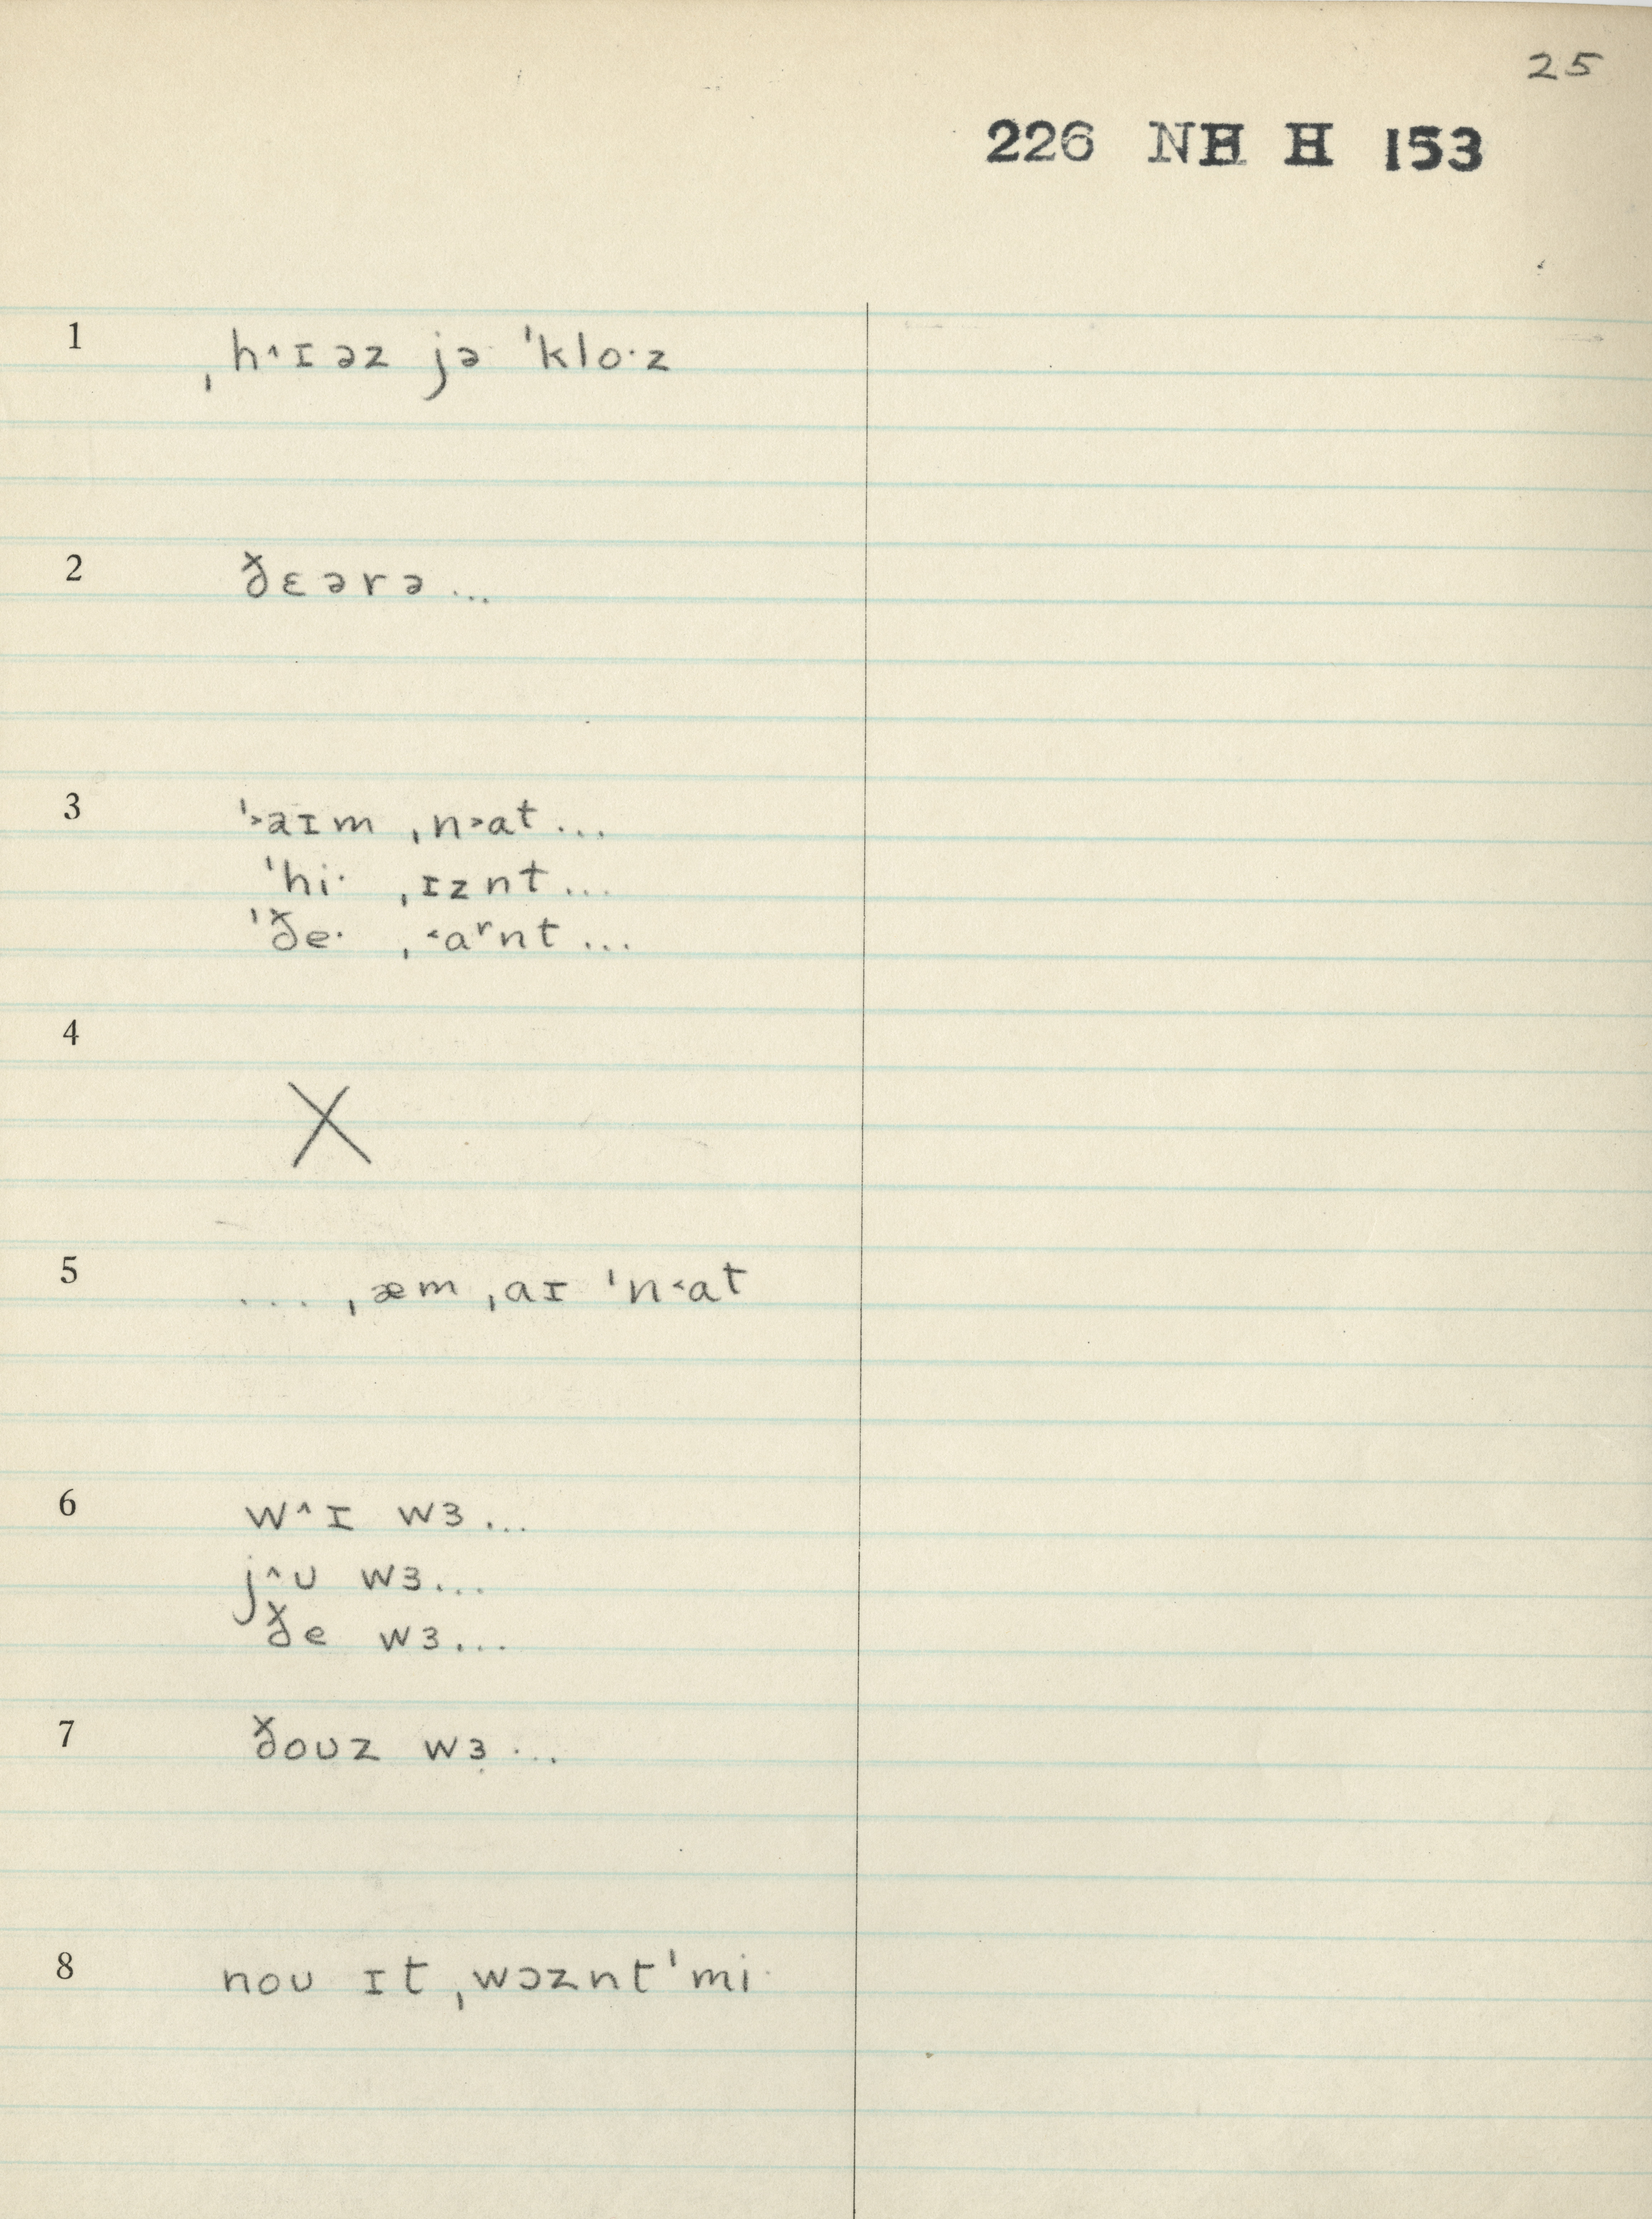 25
226 NH H 153
1 ˌh˄ɪəz jə ˈkloˑz
2 ðɛərə...
3 ˈ˃aɪm ˌn˃at...
ˈhiˑ ˌɪznt...
ˈðeˑ ˌ˂aʳnt...
4 X
5 ... ˌæm ˌaɪ ˈn˂at
6 w˄ɪ wɜ...
j˄ʊ wɜ...
ðe wɜ...
7 ðoʊz wɜ...
8 noʊ ɪt ˌwɔzntˈmiˑ